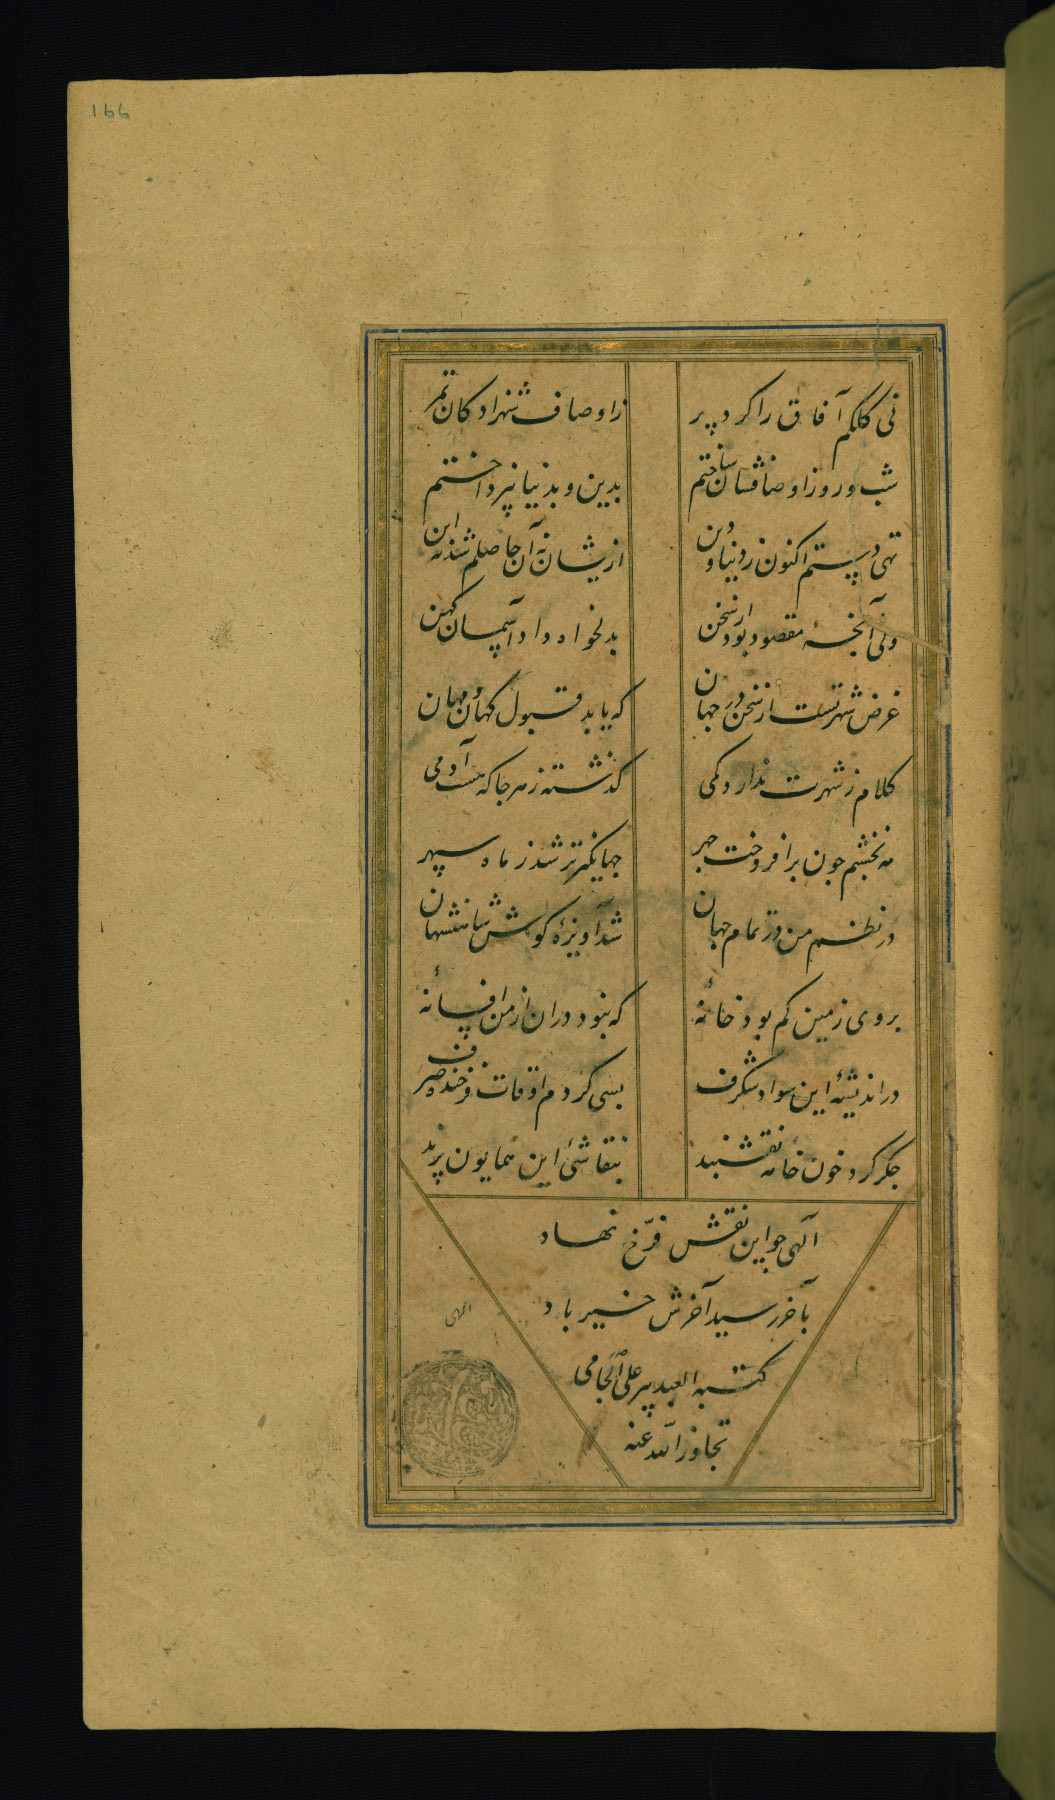 166
نی کلکم آفاق را کرد پر
ز اوصاف شهزادکان تمر
شب و روز اوصافشان ساختم
بدین و بدنیا نپرداختم
تهی دستم اکنون ز دنیا و دین
ازیشان نه آن حاصلم شد نه این
ولی آنچه مقصود بود از سخن
بدلخواه داد آسمان کهن
غرض شهرتست از سخن در جهان
که یابد قبول کهان و مهان
کلامم ز شهرت ندارد کمی
گذشته ز هر جا که هست آدمی
مه نخشبم چون برافروخت چهر
جهانگیرتر شد ز ماه سپهر
در نظم من در تمام جهان
شد آویزهٔ گوش شاهنشهان
بروی زمین کم بود خانهٔ
که نبود در آن از من افسانهٔ
در اندیشهٔ این سواد شگرف
بسی کردم اوقات فرخنده صرف
جکر کرد خون خامهٔ نقشبند
بنقاشئ این همایون پرند
الهی جو این نقش فرّخ نهاد
بآخر رسید آخرش خیر باد
کتبه العبد پیر علی الجامی
تجاوز الله عنه